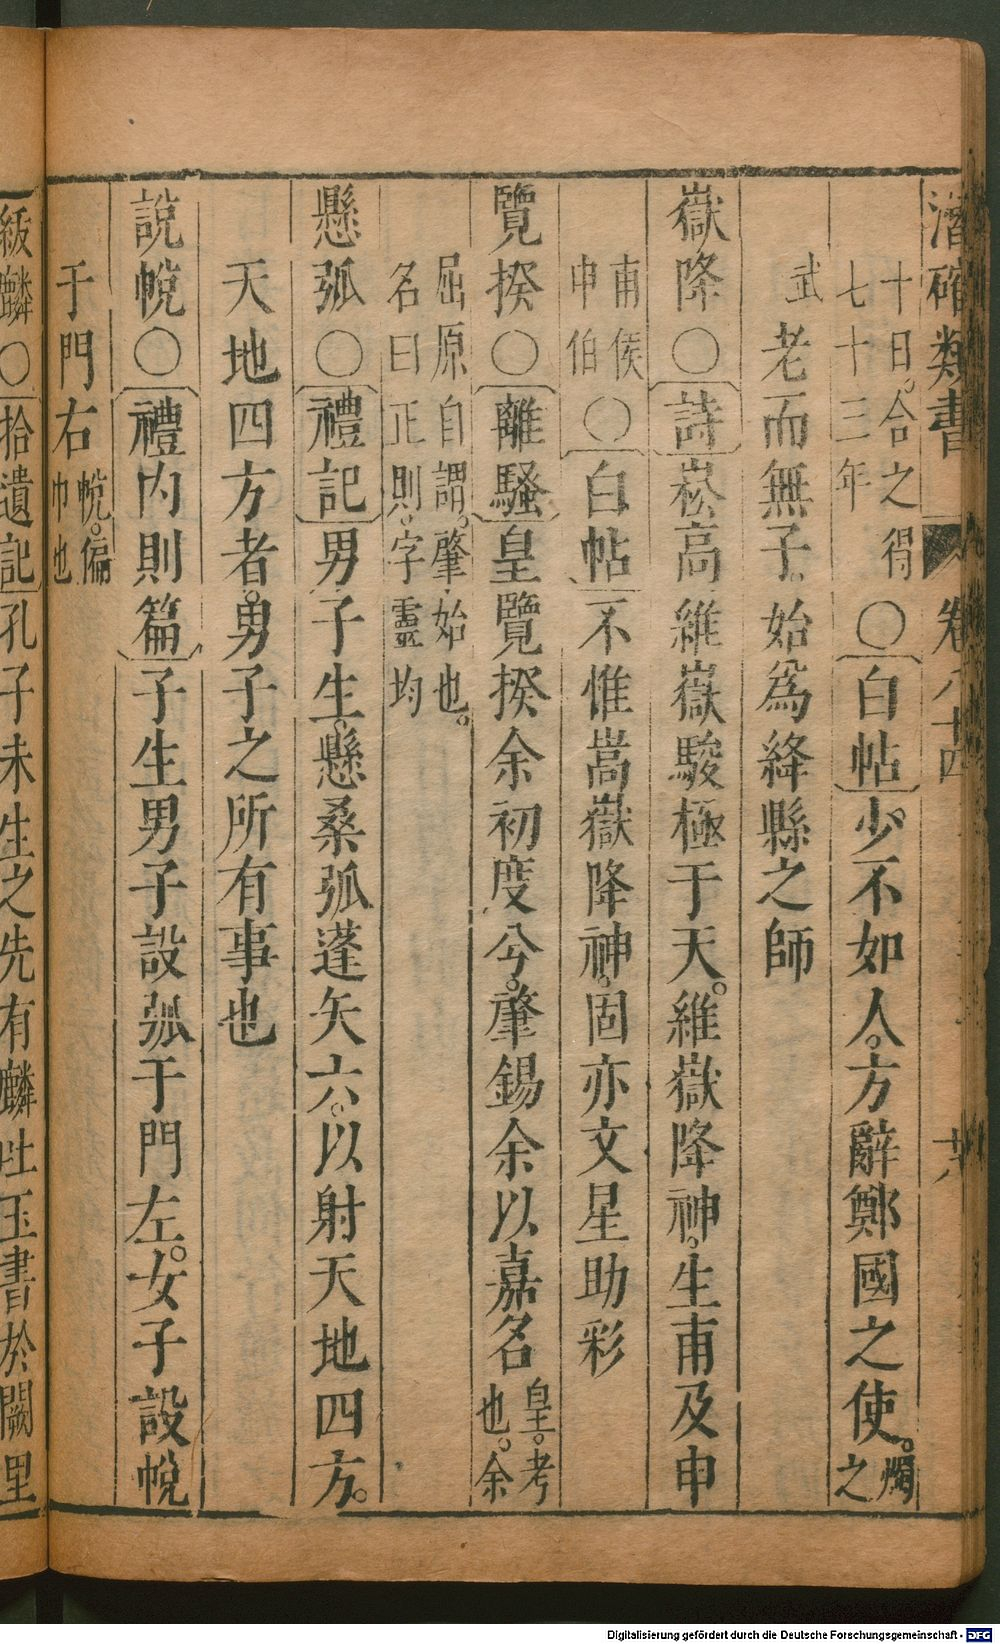 潛確類書 卷八十四 十八
十日。合之得
七十三年
○白帖少不如人。方辭鄭國之使。燭之
武
老而無子。始爲絳縣之師
嶽降○詩崧高維嶽駿極于天。維嶽降神。生甫及申
甫侯
申伯
○白帖不惟嵩嶽降神。固亦文星助彩
覽揆○離騷皇覽揆余初度兮。肇錫余以嘉名皇。考
也。余
屈原自謂。肇。始也。
名曰正則。字靈均
懸弧○禮記男子生。懸桑弧蓬矢六。以射天地四方。
天地四方者。男子之所有事也
說帨○禮內則篇子生男子設弧于門左。女子設帨
于門右帨。偏
巾也
級麟○拾遺記孔子未生之先有麟吐玉書於闕里
Digitalisierung gefördert durch die Deutsche Forschungsgemeinschaft - DFG